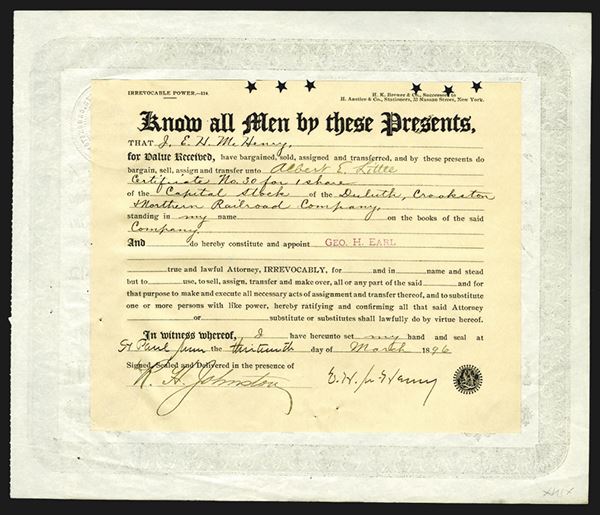 IRREVOCABLE POWER.—114.
H. K. Brewer & Co., Successors to
H. Anstice & Co., Stationers, 53 Nassau Street, New York.
Know all Men by these Presents,
THAT I, E. H. McHenry,
for Value Received, have bargained, sold, assigned and transferred, and by these presents do
bargain, sell, assign and transfer unto Albert E. Little
Certificate No. 30 for 1 share
of the Capital Stock of the Duluth, Crookston
& Northern Railroad Company,
standing in my name on the books of the said
Company.
And do hereby constitute and appoint GEO. H. EARL
true and lawful Attorney, IRREVOCABLY, for and in name and stead
but to use, to sell, assign, transfer and make over, all or any part of the said and for
that purpose to make and execute all necessary acts of assignment and transfer thereof, and to substitute
one or more persons with like power, hereby ratifying and confirming all that said Attorney
or substitute or substitutes shall lawfully do by virtue hereof.
In witness whereof, I have hereunto set my hand and seal at
St Paul Minn the thirteenth day of March 1896
Signed, Sealed and Delivered in the presence of
R. H. Johnston E. H. McHenry